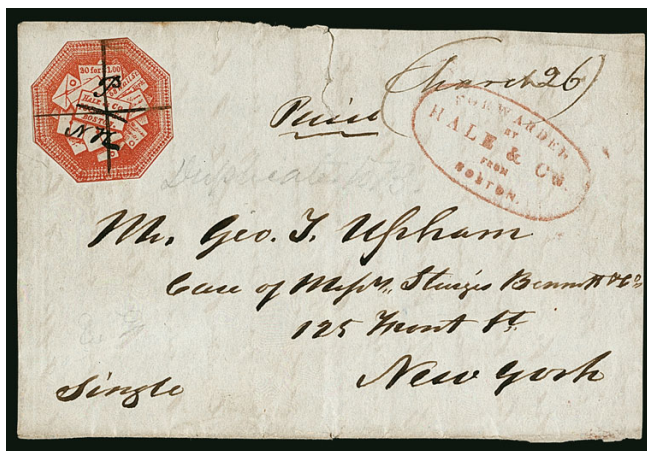 20 for $1.00
HALE & Co.
BOSTON.
(March 26)
Paid
FORWARDED
BY
HALE & Co.
FROM
BOSTON.
Duplicate
Mr. Geo. T. Upham
Care of Messrs. Sturges Bennett & Co
125 Front St.
New York
Single